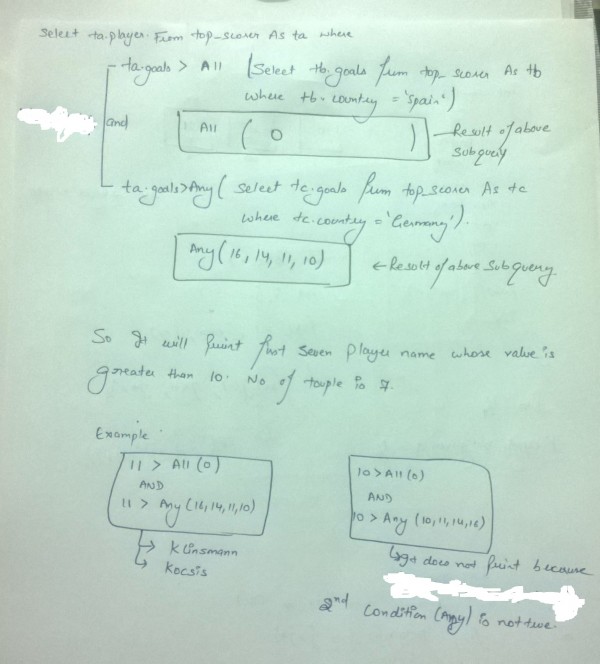 Select ta.player From top_scorer As ta where
ta.goals > All (Select tb.goals from top_scorer As tb
where tb.country = 'Spain')
and
All ( 0 )
Result of above
Subquery
ta.goals > Any ( Select tc.goals from top_scorer As tc
where tc.country = 'Germany').
Any (16, 14, 11, 10)
← Result of above Subquery
So It will print first seven player name whose value is
greater than 10. No of touple is 7.
Example
11 > All (0)
AND
11 > Any (16, 14, 11, 10)
Klinsmann
Kocsis
10 > All (0)
AND
10 > Any (10, 11, 14, 16)
It does not print because
2nd Condition (Any) is not true.